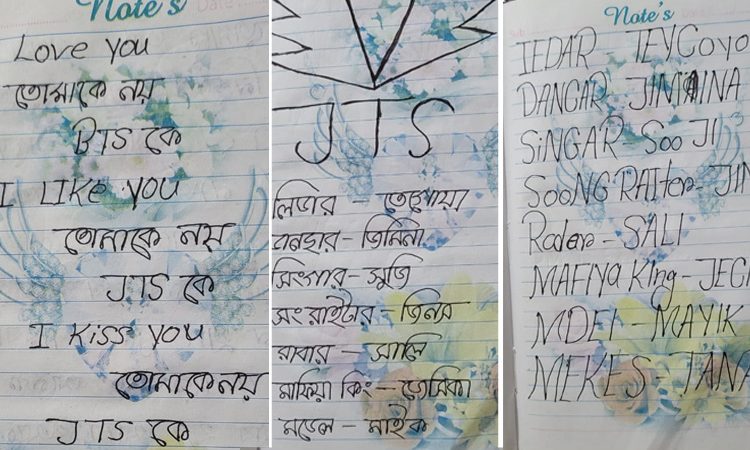 Note's
Love you
তোমাকে নয়
BTS কে
I LIKe YOU
তোমাকে নয়
JTS কে
I Kiss YOU
তোমাকে নয়
JTS কে
JTS
লিডার – তেগোয়া
ডানছার – জিমিনা
সিংগার – সুজি
সং রাইটার – জিনস
রাবার – সালি
মাফিয়া কিং – জেসিকা
মডেল – মাইক
Note's
IEDAR – TEYGOYO
DANCAR JIMAINA
SiNGAR – Soo JI
SooNG RAIter – JIN
Raler – SALI
MAFIYA KIng – JECI
MDEL – MAYIK
MEKES – TANA